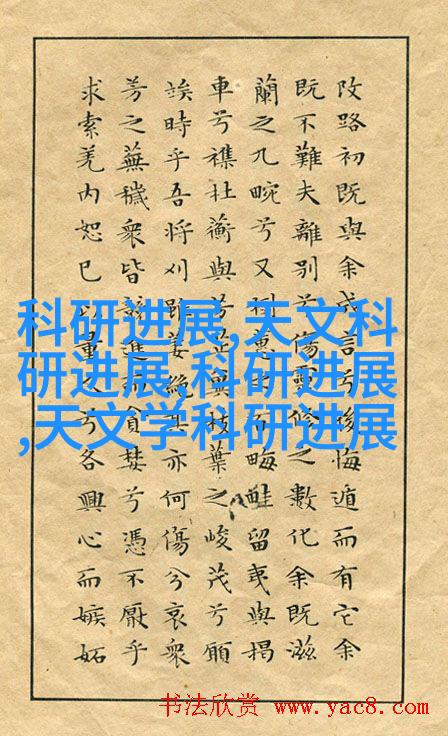 攺路初既與余成言兮後悔遁而有它余
既不難夫離別兮傷靈脩之數化余既滋
蘭之九畹兮又樹蕙之百畮畦留夷與揭
車兮襍杜蘅與芷冀枝葉之峻茂兮願
竢時乎吾將刈雖萎絶其亦何傷兮哀衆
芳之蕪穢衆皆競進而貪婪兮憑不厭乎
求索羌內恕已以量兮各興心而嫉妬
科研进展,天文科
研进展,科研进展
,天文学科研进展
书法欣赏 www.yac8.com